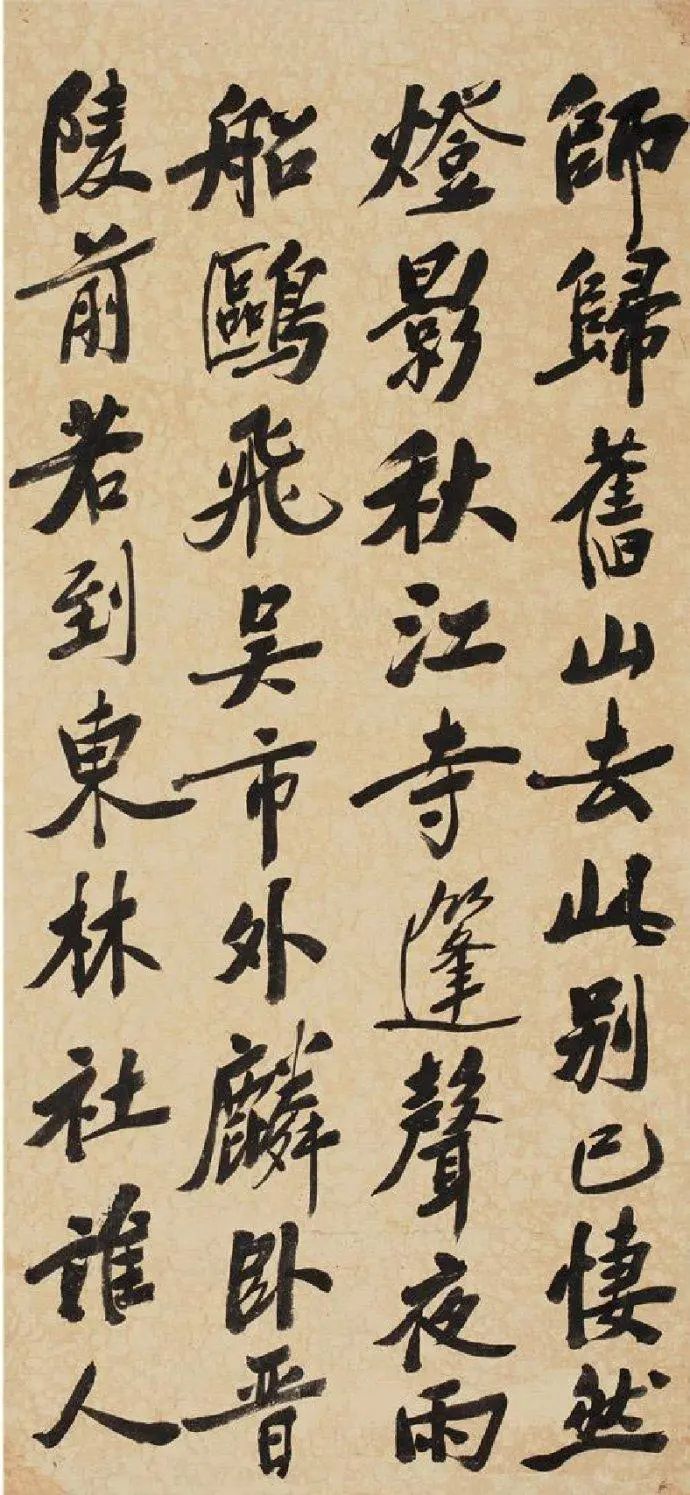 師歸舊山去此別已悽然
燈影秋江寺篷聲夜雨
船鷗飛吳市外麟臥晉
陵前若到東林社誰人